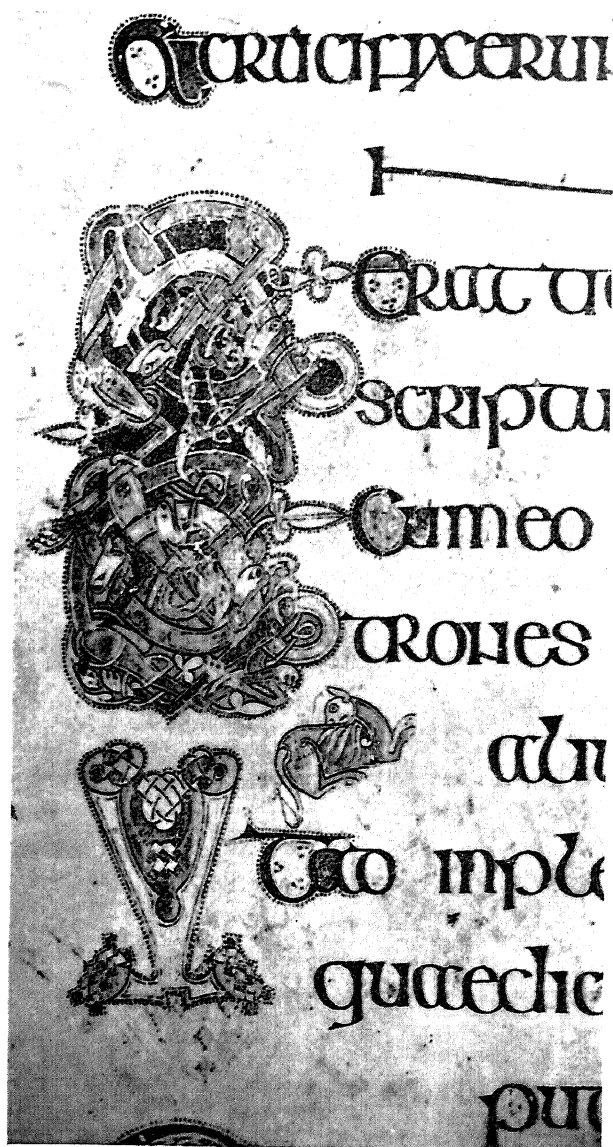 crucifixerun
Erat ti
scriptu
Cum eo
trones
aliu
inple
quaedic
put